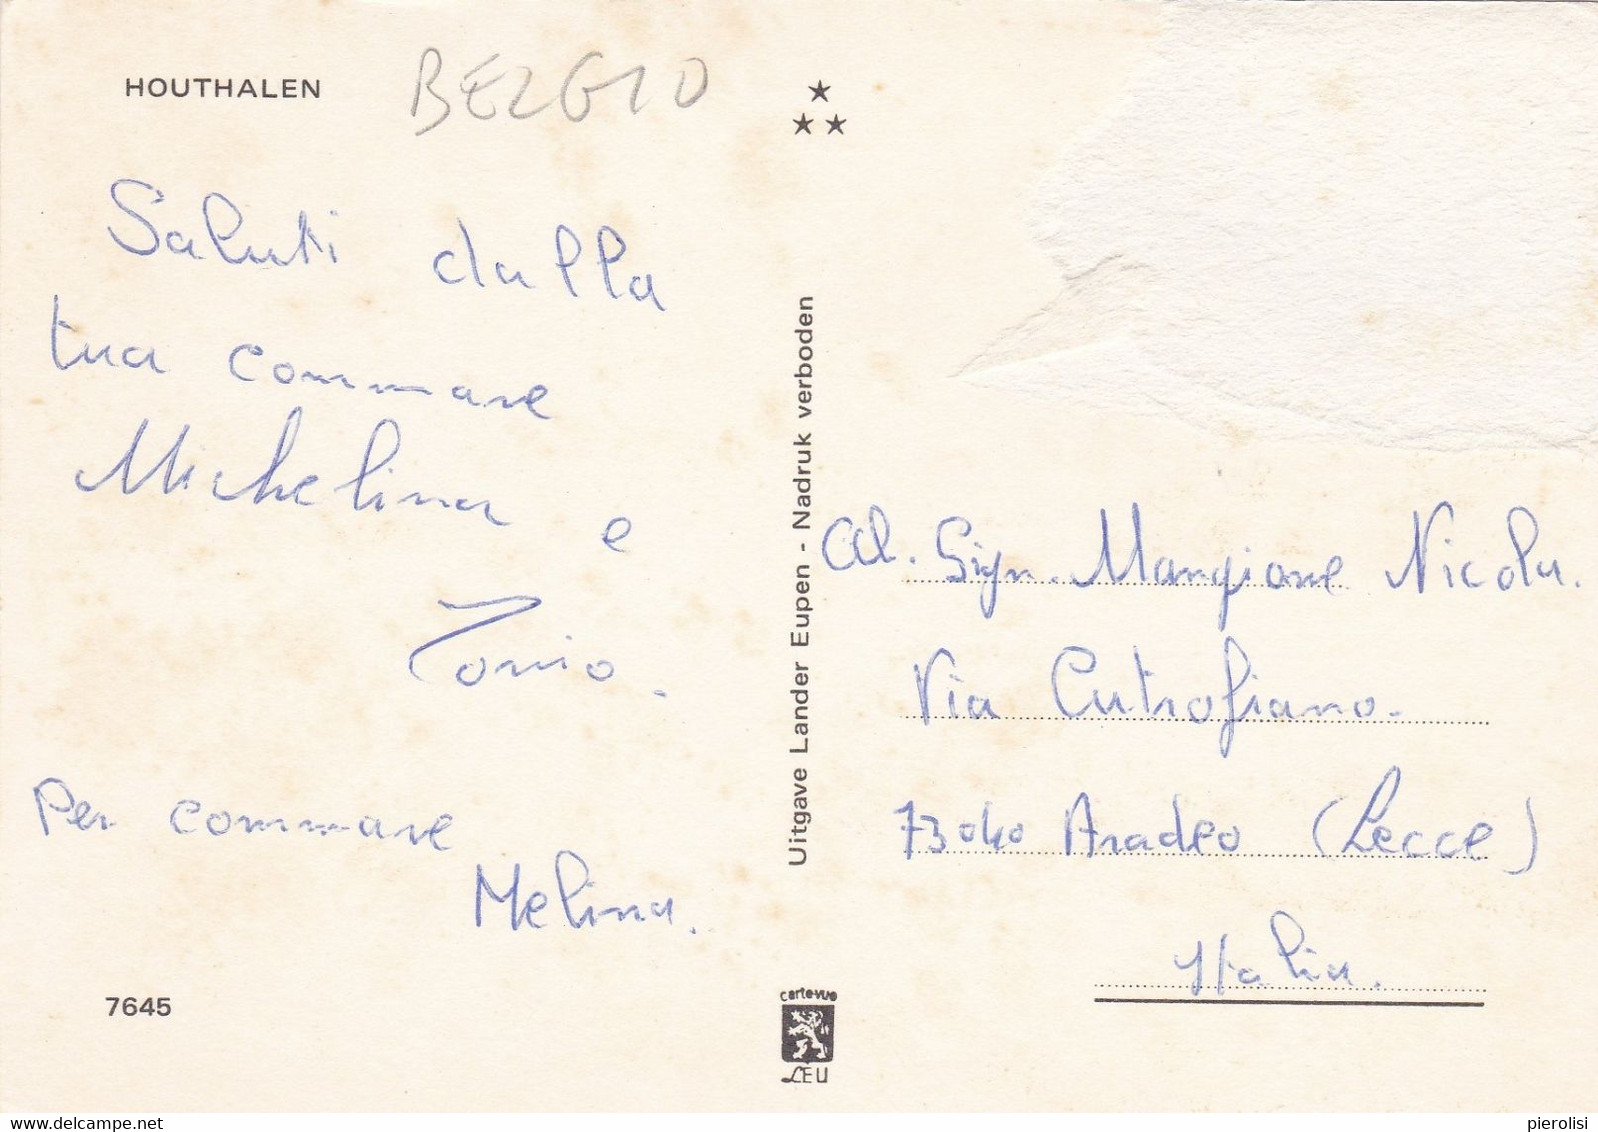 HOUTHALEN
BELGIO
Saluti dalla
tua commare
Michelina e
Tonio.
Per commare
Melina.
7645
Uitgave Lander Eupen - Nadruk verboden
carte-vue
LEU
Al. Sign. Mangione Nicola.
Via Cutrofiano.
73040 Aradeo (Lecce)
Italia.
www.delcampe.net
pierolisi